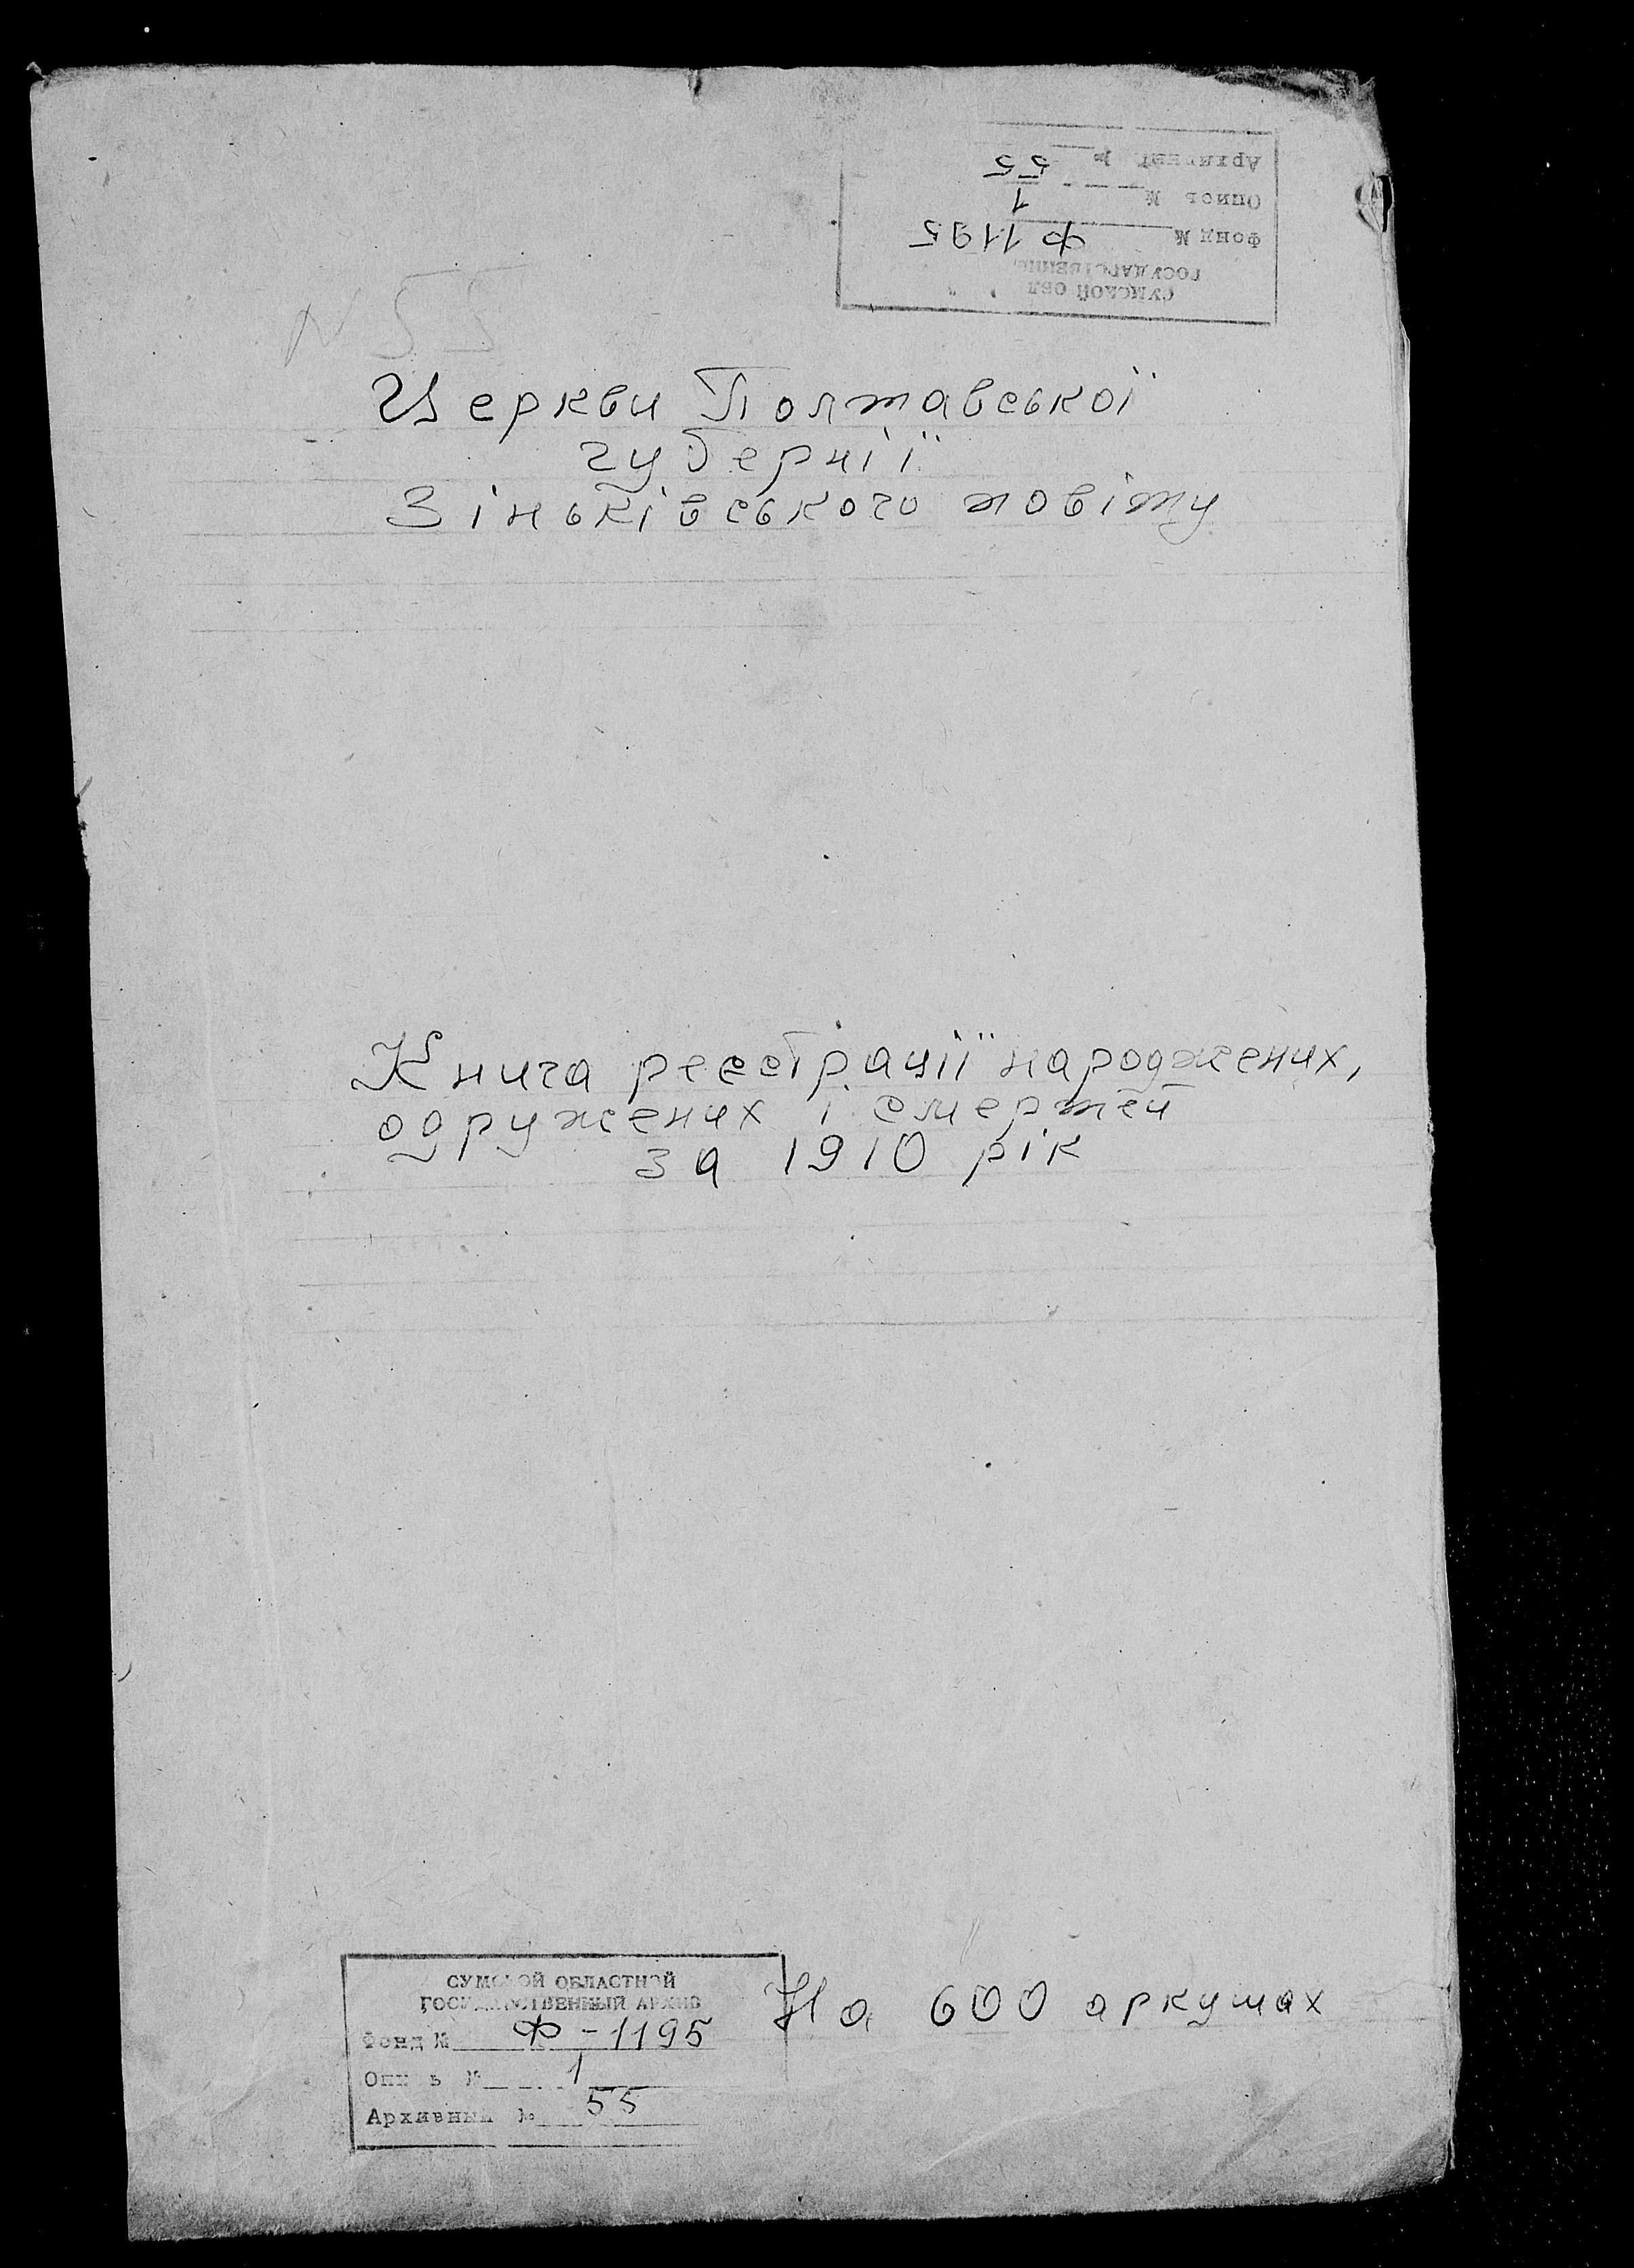 Архивный № 55
Опись № 1
Фонд № Ф 1195
СУМСКОЙ ОБЛ
N 55
Церкви Полтавської
губернії
Зіньківського повіту
Книга реєстрації народжених,
одружених і смертей
за 1910 рік
СУМСКОЙ ОБЛАСТНОЙ
ГОСУДАРСТВЕННЫЙ АРХИВ
Фонд № Ф-1195
Опись № 1
Архивный № 55
На 600 аркушах